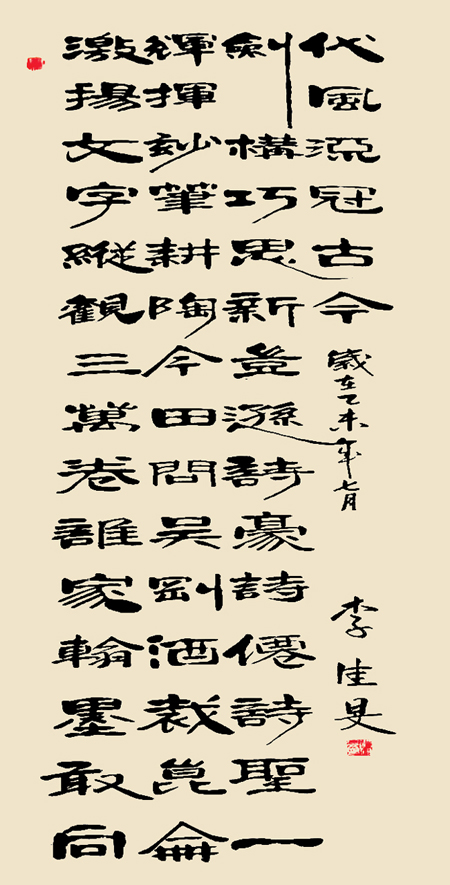 激揚文字縱觀三萬卷誰家翰墨敢同
輝揮妙筆耕陶令田問吳剛酒裁崑崙
劍構巧思新豈遜詩豪詩僊詩聖一
代風流冠古今
歲在乙未年七月
李佳旻